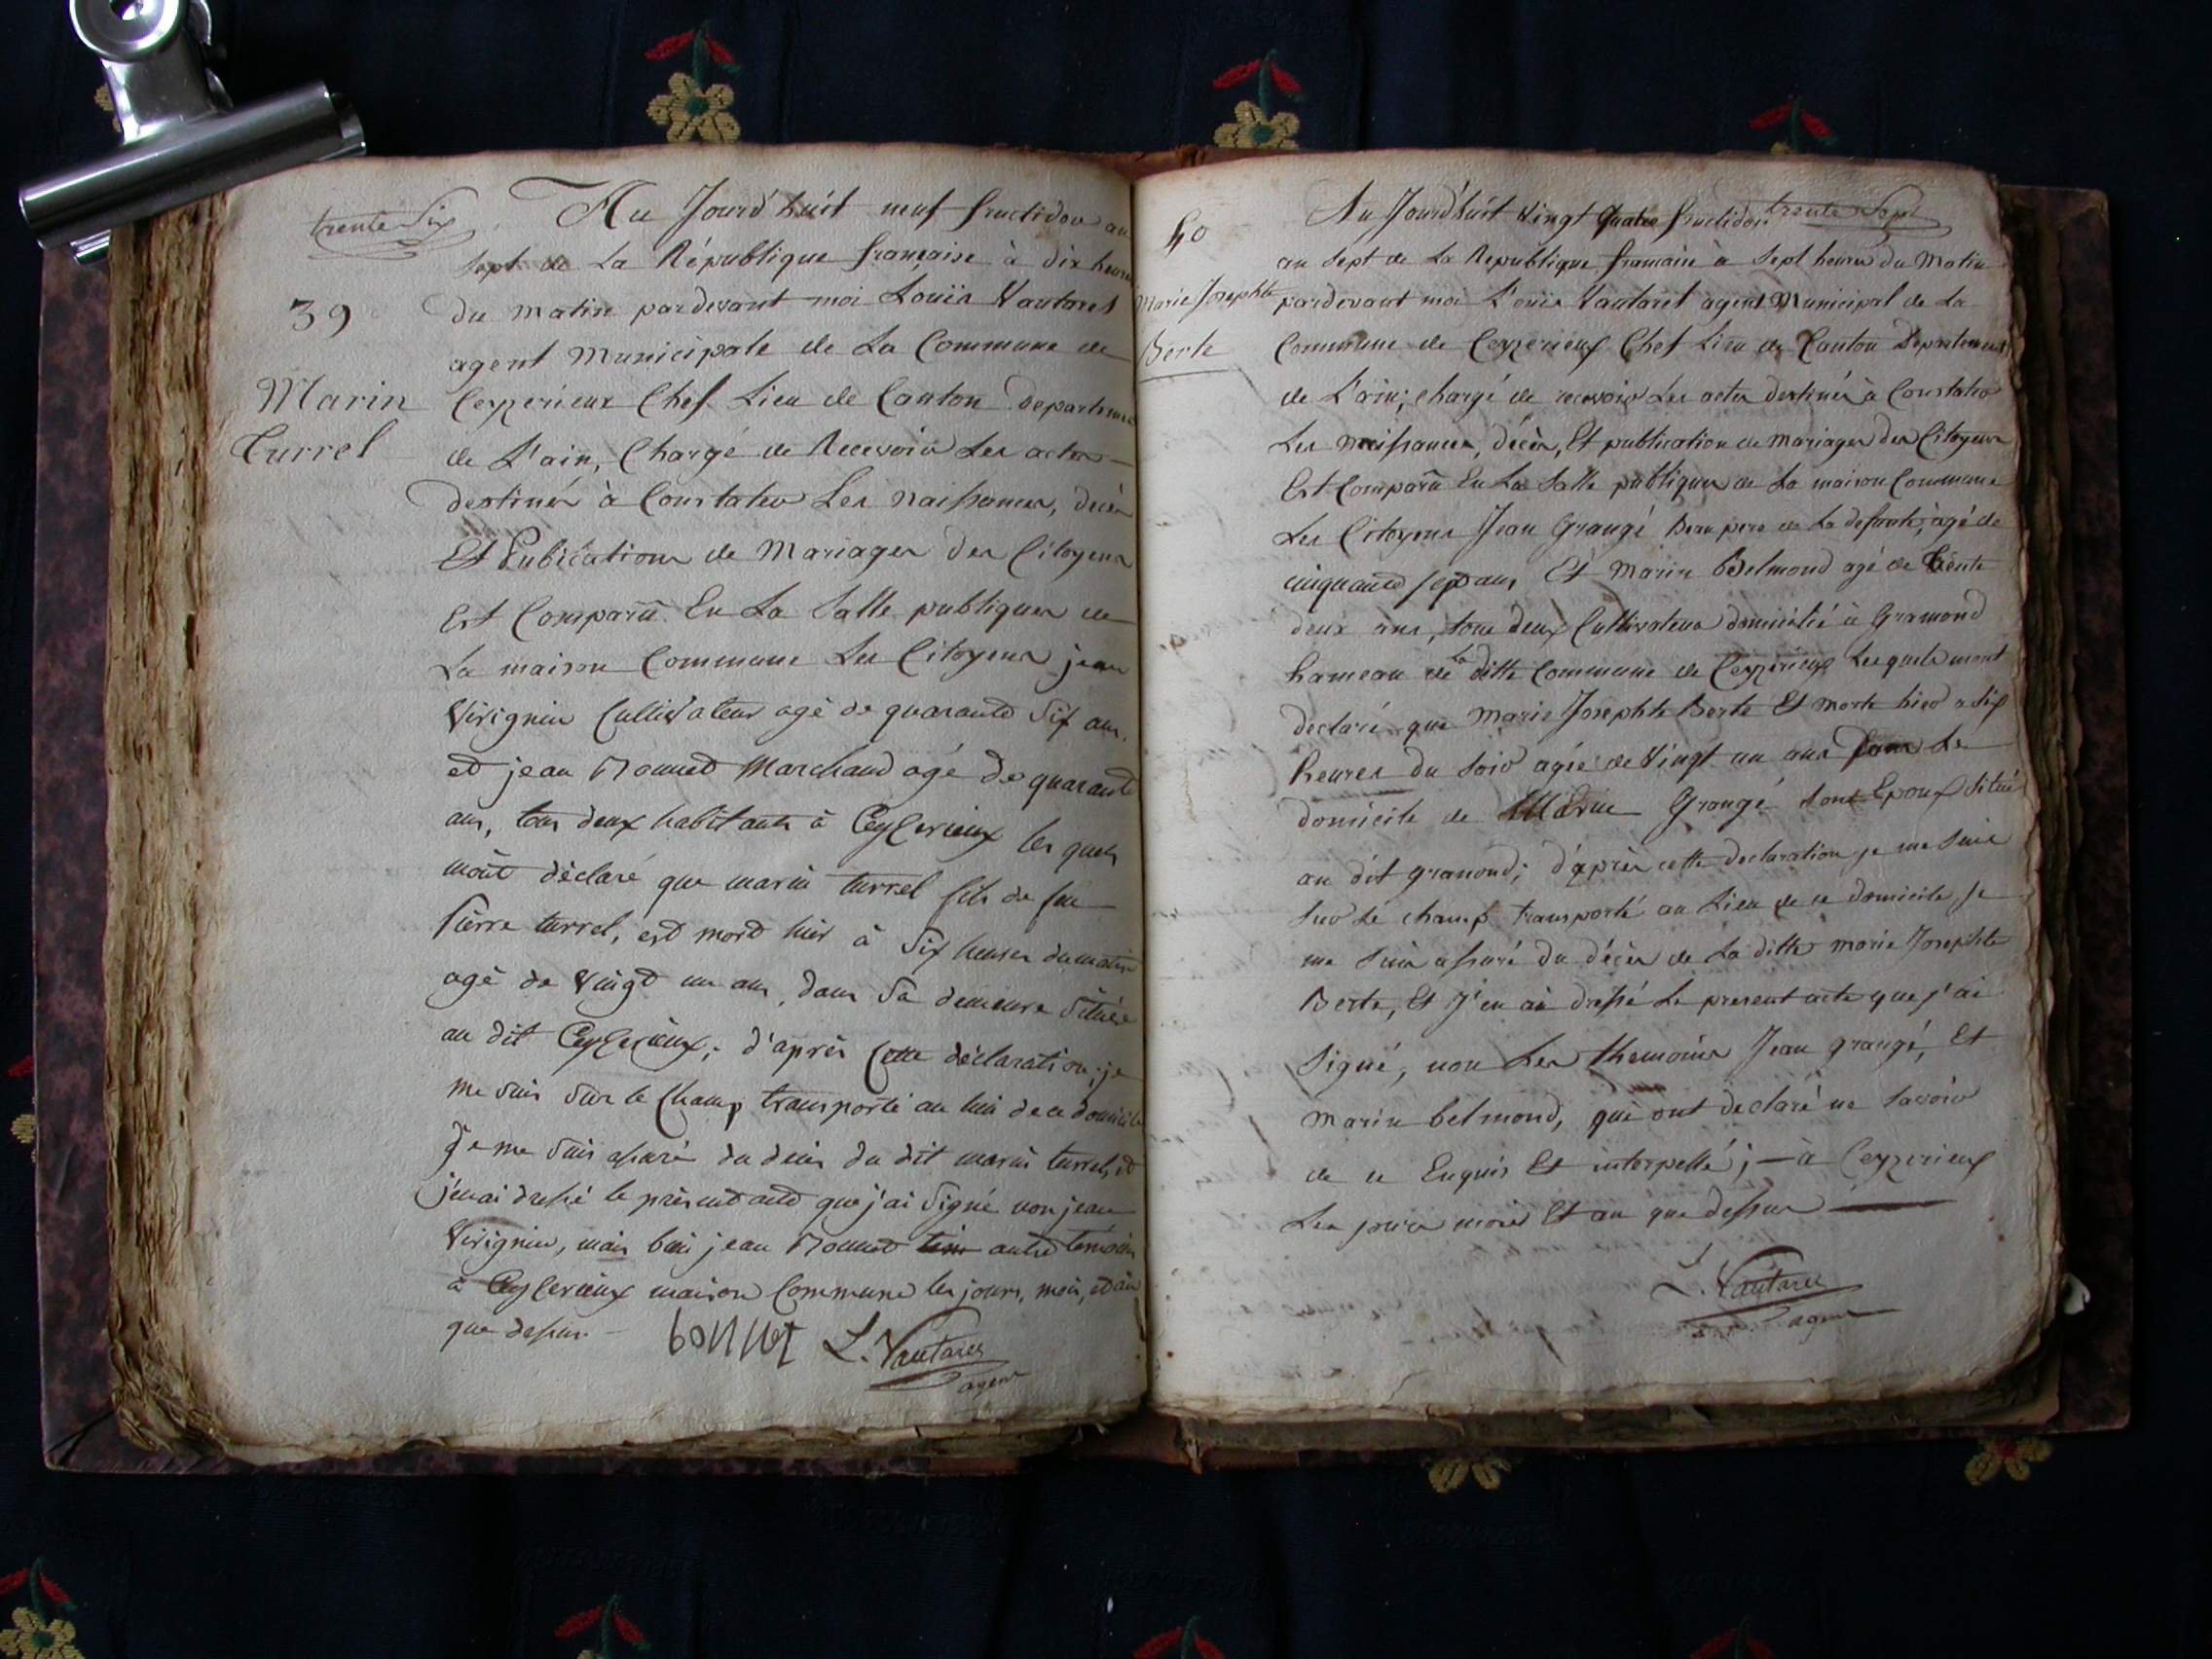 trente Six
39
Marin
Turrel
Au Jourd'huit neuf fructidor an
sept de La République française à dix heures
du matin pardevant moi Louis Vautaret
agent Municipale de La Commune de
Ceyzerieux Chef Lieu de Canton departement
de L'ain, Chargé de Recevoir Les actes
destinés à Constater Les naissances, décès
Et Publications de Mariages des Citoyens
Est Comparû En La Salle publiques de
La maison Commune Les Citoyens jean
Virignin Cultivateur agé de quarante Six ans,
et jean Monnet Marchand agé de quarante
ans, tous deux habitants à Ceyzerieux les quels
mont déclaré que marin turrel fils de feu
Pierre turrel, est mort hier à Six heures du matin
agé de vingt un ans, dans Sa demeure Située
au dit Ceyzerieux; d'après Cette déclaration, je
me Suis Sur le Champ transporté au lieu de ce domicile
Je me Suis assuré du décès du dit marin turrel, et
j'enai dressé le présent acte que j'ai Signé non jean
Virignin, mais bien jean Monnet autre temoin
à Ceyzerieux maison Commune les jours, mois, et an
que dessus.
bonnet L. Vautaret
agent
trente Sept
40
Marie Josephte
Berte
Au Jourd'huit Vingt Quatre fructidor
an Sept de La Republique francaise à Sept heures du Matin
pardevant moi Louis Vautaret agent Municipal de La
Commune de Ceyzerieux Chef Lieu de Canton Departement
de L'ain; chargé de recevoir Les actes destinés à Constater
Les naissances, décès, Et publication de mariages des Citoyens
Est Comparû En La Salle publiques de La maison Commune
Les Citoyens Jean Grangé Beau pere de La defunte, agé de
cinquante sept ans Et Marin Belmond agé de trente
deux ans, tous deux Cultivateur domicilié à Gramond
hameau de la ditte Commune de Ceyzerieux Lesquels mont
declaré que Marie Josephte Berte Et morte hier a Six
heures du Soir agée de Vingt un ans Dans Le
domicile de Grangé Son Epoux Situé
au dit gramond; d'après cette declaration je me Suis
Sur Le champ transporté au Lieu de ce domicile, Je
me Suis assuré du décès de La ditte marie Josephte
Berte, Et J'en ai dressé Le present acte que j'ai
Signé, non Les themoins Jean grangé, Et
Marin belmond, qui ont declaré ne Savoir
de ce Enquis Et interpellé; — à Ceyzerieux
Les jours mois Et an que dessus
L. Vautaret
agent